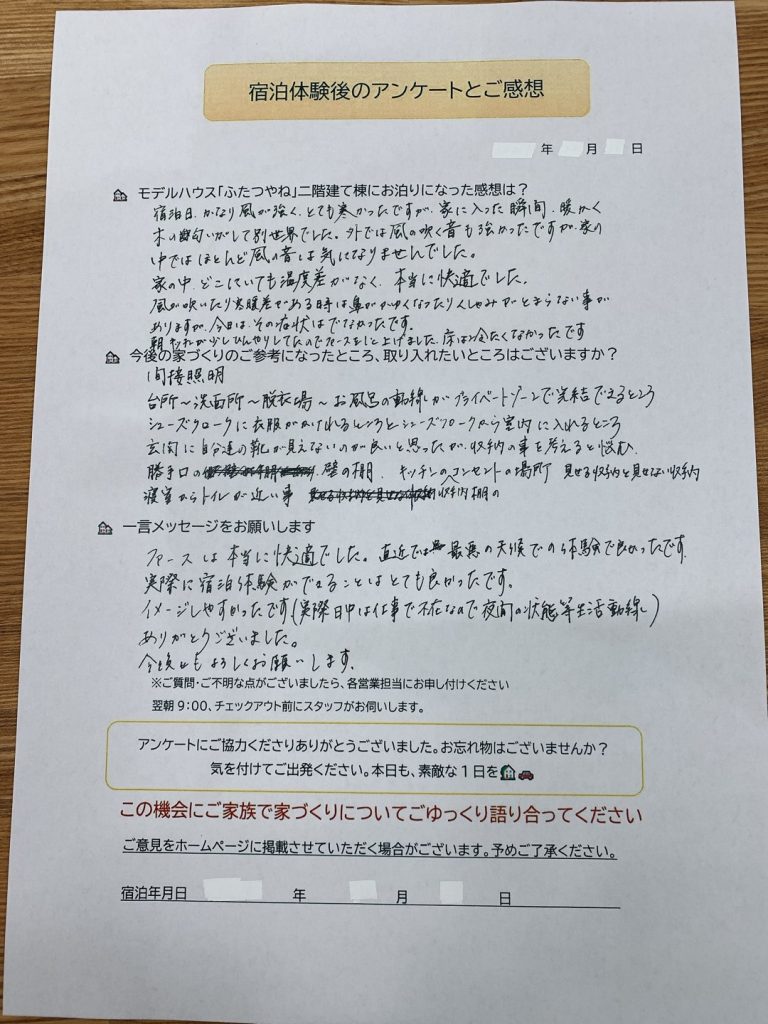 宿泊体験後のアンケートとご感想
年 月 日
モデルハウス「ふたつやね」二階建て棟にお泊りになった感想は?
宿泊日、かなり風が強く、とても寒かったですが、家に入った瞬間、暖かく
木の匂いがして別世界でした。外では風の吹く音も強かったですが、家の
中ではほとんど風の音は気になりませんでした。
家の中、どこにいても温度差がなく、本当に快適でした。
風が吹いたり寒暖差がある時は鼻がかゆくなったりくしゃみがとまらない事が
ありますが、今日は、その症状はでなかったです。
朝、それが少しひんやりしてたのでファースを1℃上げました。床は冷たくなかったです
今後の家づくりのご参考になったところ、取り入れたいところはございますか?
間接照明
台所~洗面所~脱衣場~お風呂の動線がプライベートゾーンで完結できるところ
シューズクロークに衣服がかけれるところとシューズクロークから室内に入れるところ
玄関に自分達の靴が見えないのが良いと思ったが、収納の事を考えると悩む。
勝手口の 壁の棚、キッチンのコンセントの場所 見せる収納と見せない収納
寝室からトイレが近い事 収納棚の
一言メッセージをお願いします
ファースは本当に快適でした。直近では最悪の天候での体験で良かったです。
実際に宿泊体験ができることはとても良かったです。
イメージしやすかったです(実際日中は仕事で不在なので夜間の状態等生活動線)
ありがとうございました。
今後ともよろしくお願いします。
※ご質問・ご不明な点がございましたら、各営業担当にお申し付けください
翌朝 9:00、チェックアウト前にスタッフがお伺いします。
アンケートにご協力くださりありがとうございました。お忘れ物はございませんか?
気を付けてご出発ください。本日も、素敵な1日を
この機会にご家族で家づくりについてごゆっくり語り合ってください
ご意見をホームページに掲載させていただく場合がございます。予めご了承ください。
宿泊年月日 年 月 日